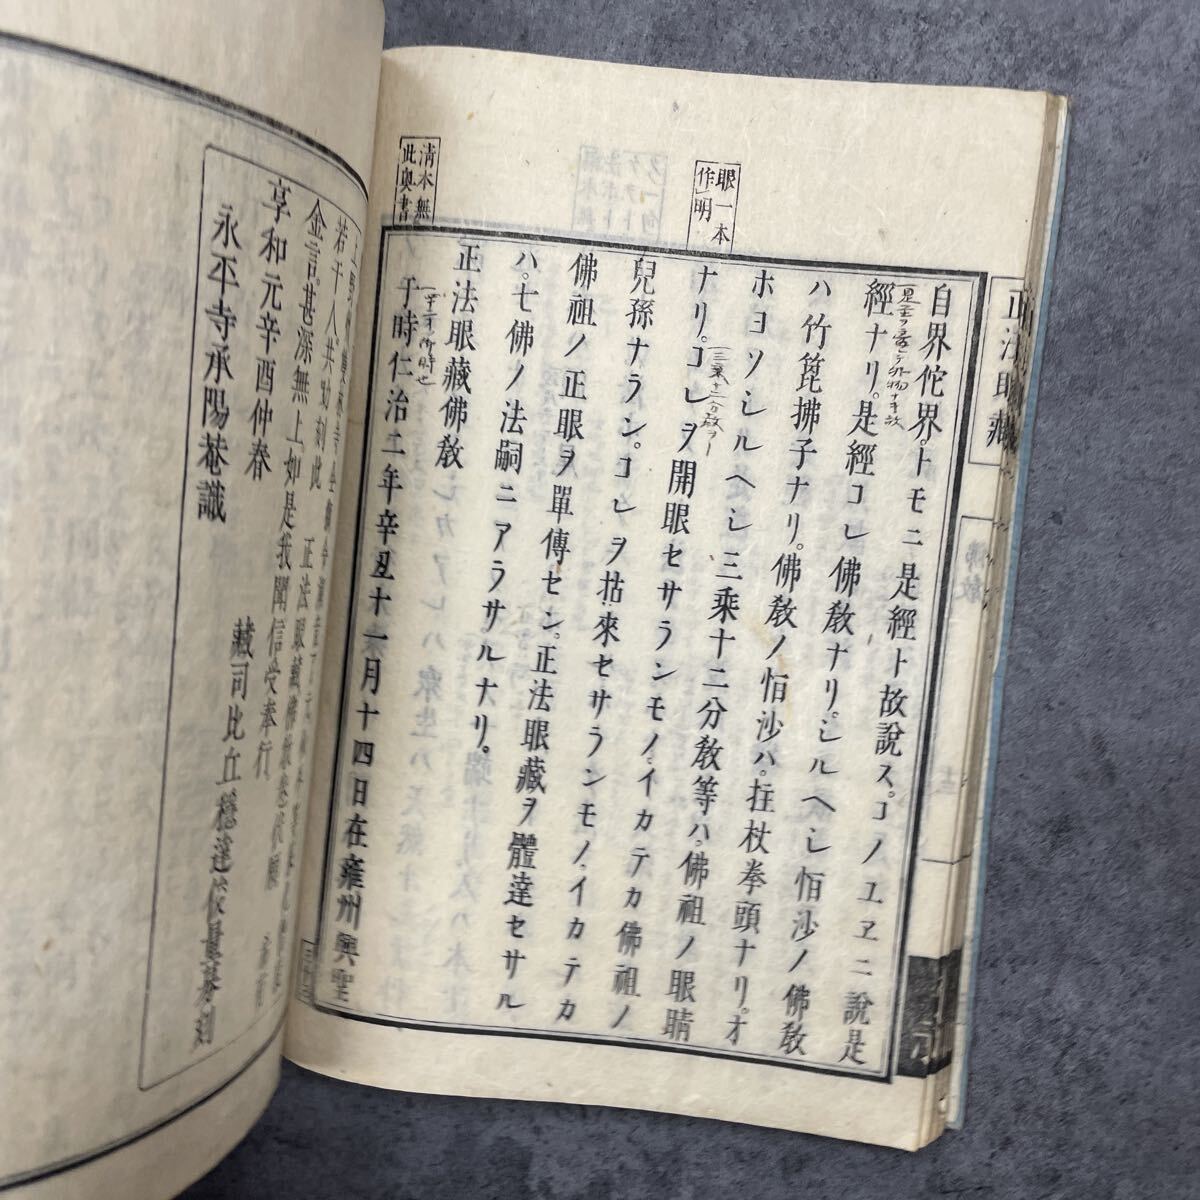 正法眼藏
佛教
眼一本
作明
清本無
此奥書
自界佗界。トモニ是經ト故說ス。コノヱヱニ說是
經ナリ。是經コレ佛教ナリ。シルヘシ恒沙ノ佛教
ハ竹箆拂子ナリ。佛教ノ恒沙ハ。拄杖拳頭ナリ。オ
ホヨソシルヘシ三乘十二分教等ハ。佛祖ノ眼睛
ナリ。コレヲ開眼セサランモノ。イカテカ佛祖ノ
兒孫ナラン。コレヲ拈來セサランモノ。イカテカ
佛祖ノ正眼ヲ單傳セン。正法眼藏ヲ體達セサル
ハ。七佛ノ法嗣ニアラサルナリ。
正法眼藏佛教
于時仁治二年辛丑十一月十四日在雍州興聖
若干人共助刻此 正法眼藏佛教卷伏願
金言。甚深無上。如是我聞信受奉行
享和元辛酉仲春
永平寺承陽菴識
藏司比丘穩達俊量募刻